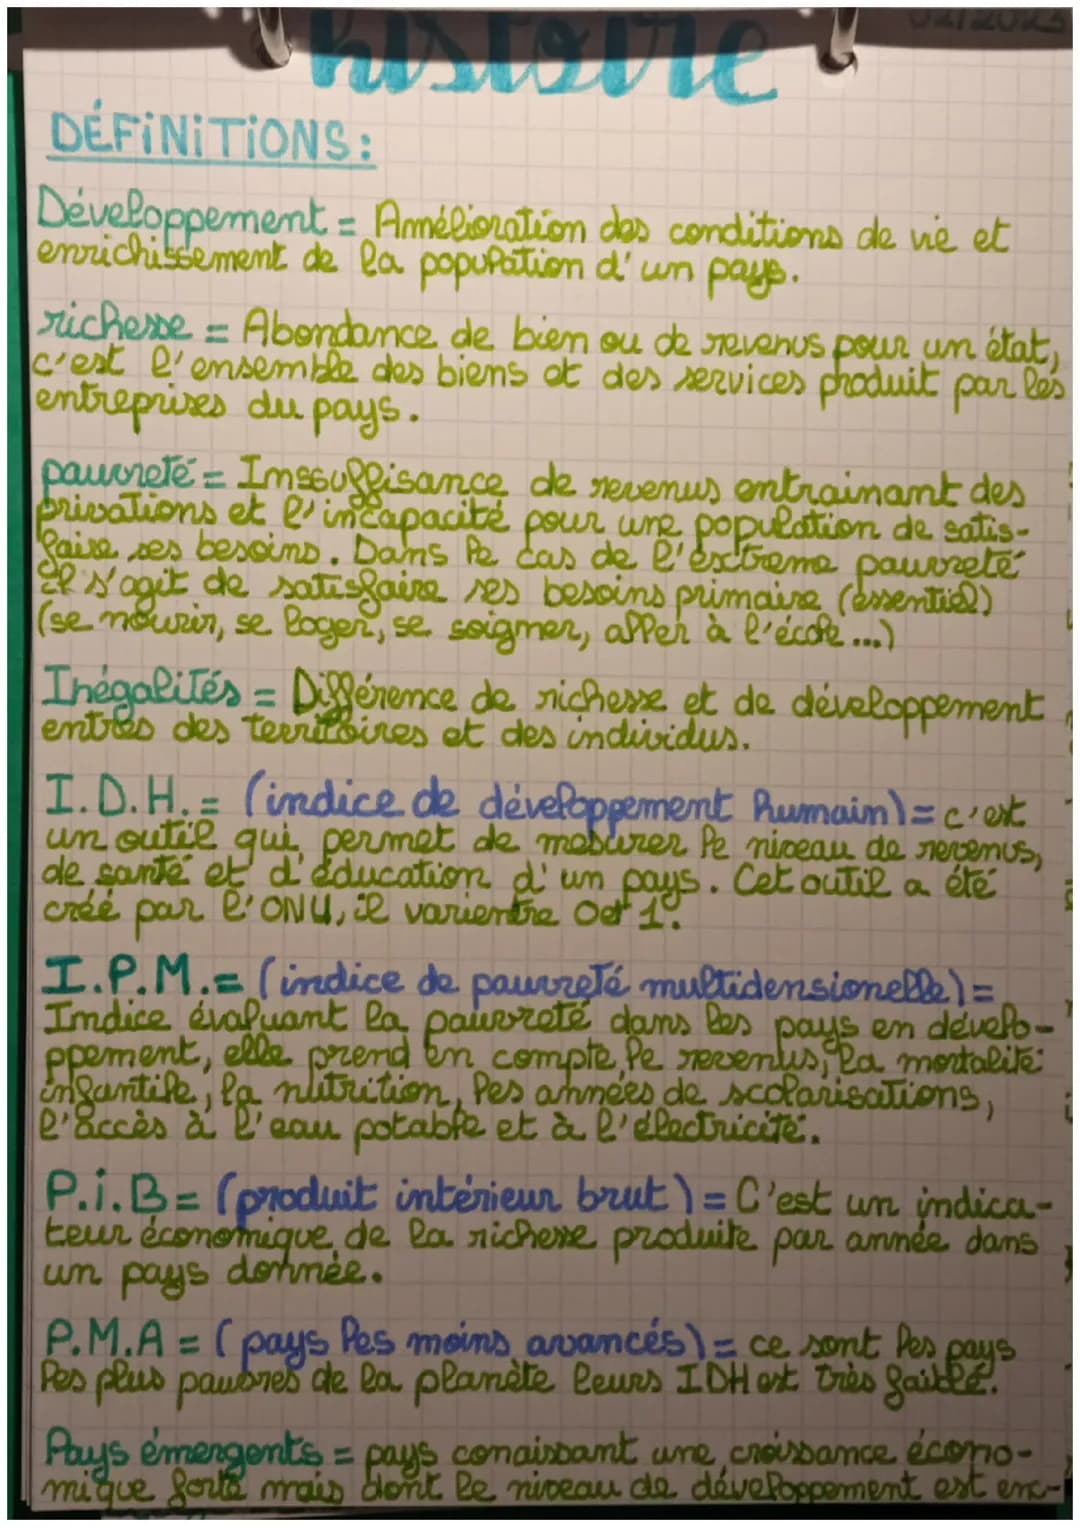 histoire
DÉFINITIONS:
Développement = Ammélioration des conditions de vie et
enrichissement de la population d'un pays.
richesse = Abondance de bien ou de revenus pour un état,
c'est l'ensemble des biens et des services produit par les
entreprises du pays.
pauvreté = Imssuffisance de revenus entrainant des
privations et l'incapacité pour une population de satis-
faire ses besoins. Dans le cas de l'éxtreme pauvreté
Il s'agit de satisfaire ses besoins primaire (essentiel)
(se nourir, se loger, se soigner, aller à l'école...)
Inégalités = Différence de richesse et de développement
entres des territoires et des individus.
I.D.H. = (indice de développement humain) = c'est
un outil qui permet de mesurer le niveau de revenus,
de santé et d'éducation d'un pays. Cet outil a été
créé par l'ONU, il varientre 0 et 1.
I.P.M. = (indice de pauvreté multidensionelle) =
Indice évaluant la pauvreté dans les pays en dévelo-
ppement, elle prend en compte, le revenus, la mortalité
infantile, la nutrition, les années de scolarisations,
l'accès à l'eau potable et à l'électricité.
P.i.B = (produit intérieur brut) = C'est un indica-
teur économique de la richesse produite par année dans
un pays donnée.
P.M.A = (pays les moins avancés) = ce sont les pays
les plus pauvres de la planète leurs IDH est très faible.
Pays émergents = pays conaissant une croissance écono-
mique forte mais dont le niveau de développement est enc-